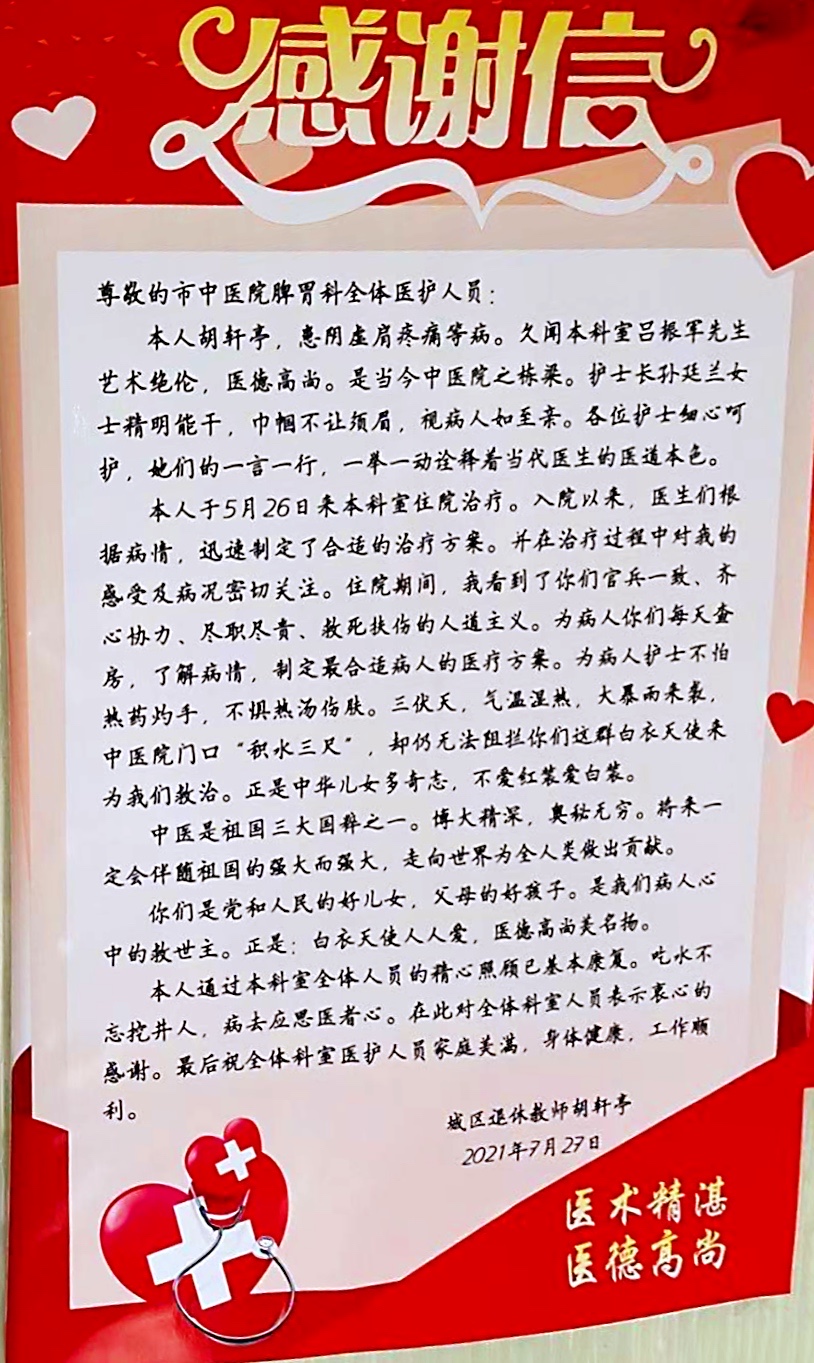 感谢信
尊敬的市中医院脾胃科全体医护人员：
本人胡轩亭，患阴虚肩疼痛等病。久闻本科室吕振军先生
艺术绝伦，医德高尚。是当今中医院之栋梁。护士长孙廷兰女
士精明能干，巾帼不让须眉，视病人如至亲。各位护士细心呵
护，她们的一言一行，一举一动诠释着当代医生的医道本色。
本人于5月26日来本科室住院治疗。入院以来，医生们根
据病情，迅速制定了合适的治疗方案。并在治疗过程中对我的
感受及病况密切关注。住院期间，我看到了你们官兵一致、齐
心协力、尽职尽责、救死扶伤的人道主义。为病人你们每天查
房，了解病情，制定最合适病人的医疗方案。为病人护士不怕
热药灼手，不惧热汤伤肤。三伏天，气温湿热，大暴雨来袭，
中医院门口“积水三尺”，却仍无法阻拦你们这群白衣天使来
为我们救治。正是中华儿女多奇志，不爱红装爱白装。
中医是祖国三大国粹之一。博大精深，奥秘无穷。将来一
定会伴随祖国的强大而强大，走向世界为全人类做出贡献。
你们是党和人民的好儿女，父母的好孩子。是我们病人心
中的救世主。正是：白衣天使人人爱，医德高尚美名扬。
本人通过本科室全体人员的精心照顾已基本康复。吃水不
忘挖井人，病去应思医者心。在此对全体科室人员表示衷心的
感谢。最后祝全体科室医护人员家庭美满，身体健康，工作顺
利。
城区退休教师胡轩亭
2021年7月27日
医术精湛
医德高尚